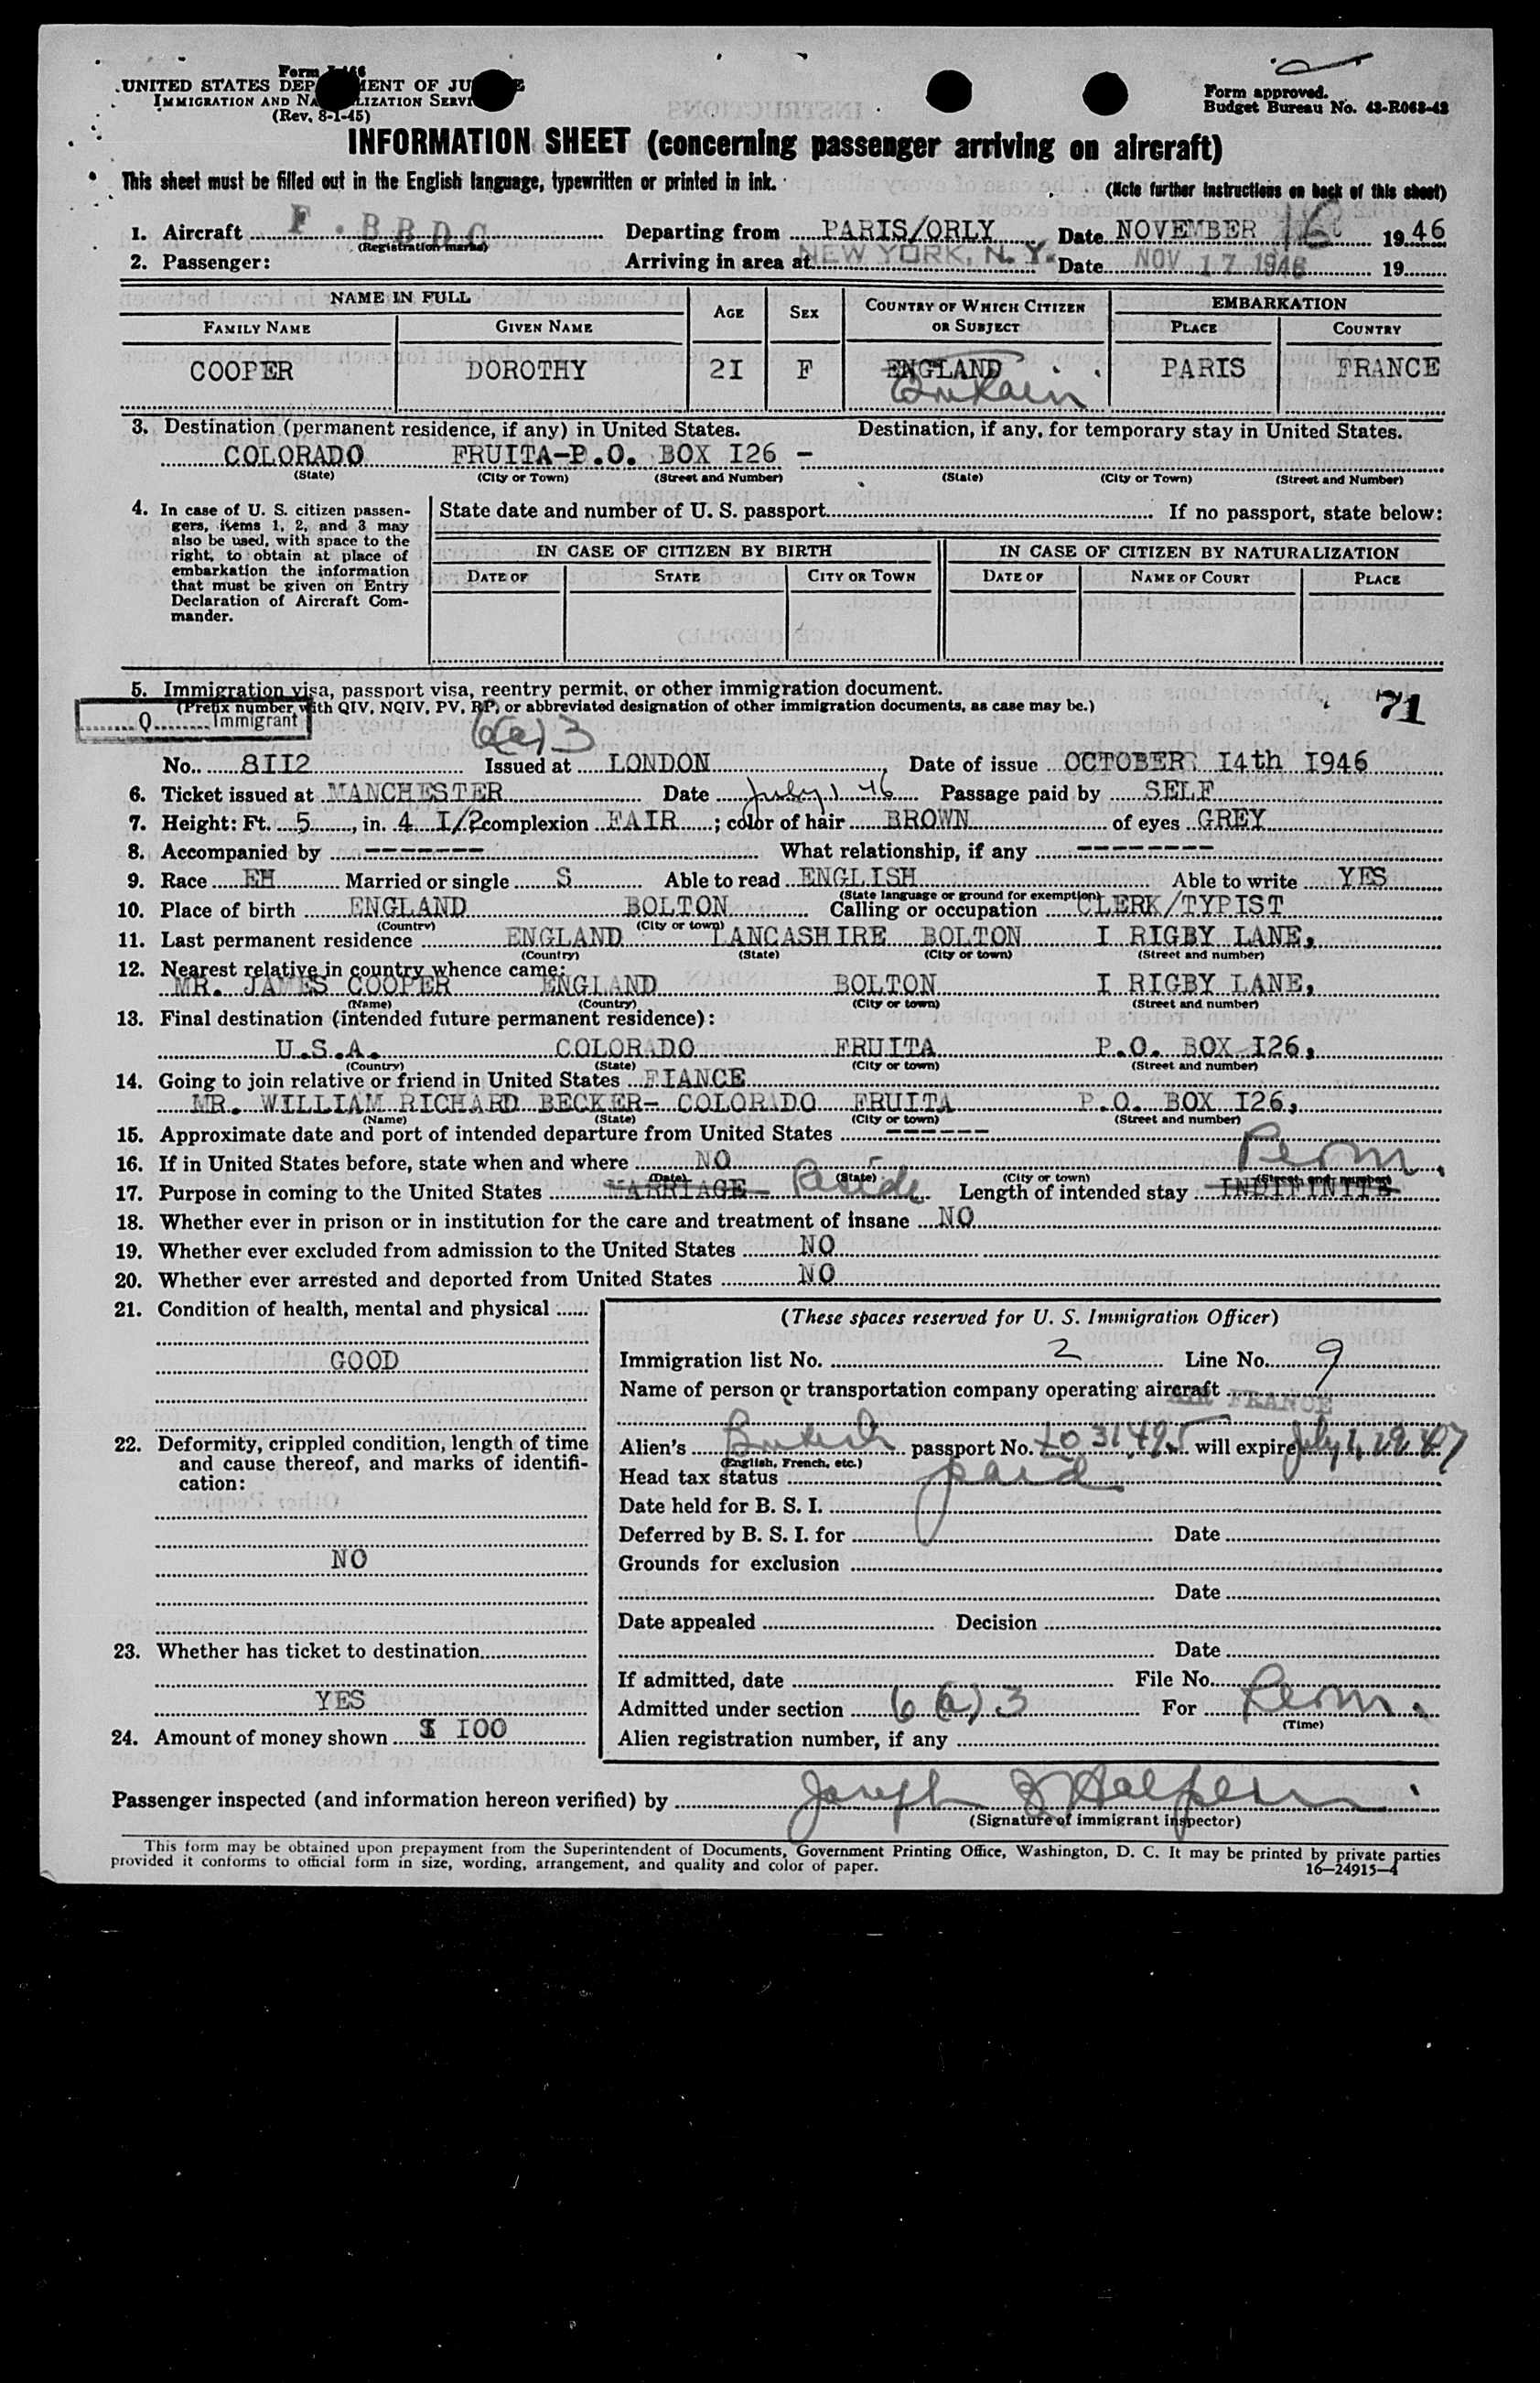 Form I-466
UNITED STATES DEPARTMENT OF JUSTICE
IMMIGRATION AND NATURALIZATION SERVICE
(Rev. 8-1-45)
Form approved.
Budget Bureau No. 43-R063-42
INFORMATION SHEET (concerning passenger arriving on aircraft)
This sheet must be filled out in the English language, typewritten or printed in ink.
(Note further instructions on back of this sheet)
1. Aircraft F.BBDC Departing from PARIS/ORLY Date NOVEMBER 16 1946
(Registration marks)
2. Passenger: Arriving in area at NEW YORK, N. Y. Date NOV 17 1946 19
NAME IN FULL AGE SEX COUNTRY OF WHICH CITIZEN OR SUBJECT EMBARKATION
FAMILY NAME GIVEN NAME PLACE COUNTRY
COOPER DOROTHY 2I F ENGLAND PARIS FRANCE
Britain
3. Destination (permanent residence, if any) in United States. Destination, if any, for temporary stay in United States.
COLORADO FRUITA-P.O. BOX I26 -
(State) (City or Town) (Street and Number) (State) (City or Town) (Street and Number)
4. In case of U. S. citizen passengers, items 1, 2, and 3 may also be used, with space to the right, to obtain at place of embarkation the information that must be given on Entry Declaration of Aircraft Commander.
State date and number of U. S. passport If no passport, state below:
IN CASE OF CITIZEN BY BIRTH IN CASE OF CITIZEN BY NATURALIZATION
DATE OF STATE CITY OR TOWN DATE OF NAME OF COURT PLACE
5. Immigration visa, passport visa, reentry permit, or other immigration document.
(Prefix number with QIV, NQIV, PV, RP, or abbreviated designation of other immigration documents, as case may be.)
71
Q Immigrant
6(a)3
No. 8II2 Issued at LONDON, Date of issue OCTOBER I4th I946
6. Ticket issued at MANCHESTER Date July 1 46 Passage paid by SELF
7. Height: Ft. 5, in. 4 I/2; complexion FAIR; color of hair BROWN of eyes GREY
8. Accompanied by ------- What relationship, if any ---------
9. Race EH Married or single S Able to read ENGLISH Able to write YES
(State language or ground for exemption)
10. Place of birth ENGLAND BOLTON Calling or occupation CLERK/TYPIST
(Country) (City or town)
11. Last permanent residence ENGLAND LANCASHIRE BOLTON I RIGBY LANE,
(Country) (State) (City or town) (Street and number)
12. Nearest relative in country whence came:
MR. JAMES COOPER ENGLAND BOLTON I RIGBY LANE,
(Name) (Country) (City or town) (Street and number)
13. Final destination (intended future permanent residence):
U.S.A. COLORADO FRUITA P.O. BOX I26,
(Country) (State) (City or town) (Street and number)
14. Going to join relative or friend in United States FIANCE
MR. WILLIAM RICHARD BECKER- COLORADO FRUITA P.O. BOX I26,
(Name) (State) (City or town) (Street and number)
15. Approximate date and port of intended departure from United States ------
16. If in United States before, state when and where NO
(Date) (State) (City or town) (Street and number)
Perm.
17. Purpose in coming to the United States MARRIAGE - Bride Length of intended stay INDIFINITE
18. Whether ever in prison or in institution for the care and treatment of insane NO
19. Whether ever excluded from admission to the United States NO
20. Whether ever arrested and deported from United States NO
21. Condition of health, mental and physical
GOOD
22. Deformity, crippled condition, length of time and cause thereof, and marks of identification:
NO
23. Whether has ticket to destination
YES
24. Amount of money shown $ I00
(These spaces reserved for U. S. Immigration Officer)
Immigration list No. 2 Line No. 9
Name of person or transportation company operating aircraft
AIR FRANCE
Alien's British passport No. LO 31495 will expire July 1, 1947
(English, French, etc.)
Head tax status paid
Date held for B. S. I.
Deferred by B. S. I. for Date
Grounds for exclusion
Date
Date appealed Decision
Date
If admitted, date File No.
Admitted under section 6(a)3 For Perm.
(Time)
Alien registration number, if any
Passenger inspected (and information hereon verified) by Joseph Halpern
(Signature of immigrant inspector)
This form may be obtained upon prepayment from the Superintendent of Documents, Government Printing Office, Washington, D. C. It may be printed by private parties
provided it conforms to official form in size, wording, arrangement, and quality and color of paper.
16—24915-4